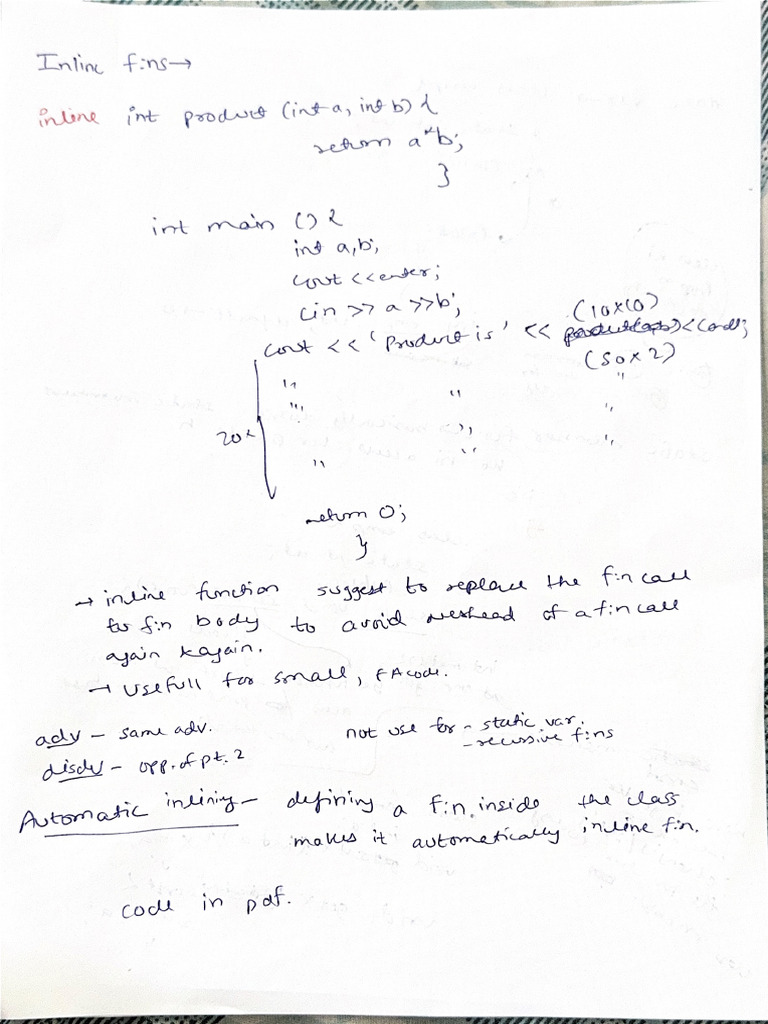 Inline f:ns→
inline int product (int a, int b) {
return a*b;
}
int main () {
int a,b;
cout <<enter;
cin >> a >>b;
(10x10)
cout << 'Product is' << <<endl;
(50x2)
" " "
" " "
20x
" "
return 0;
}
→ inline function suggest to replace the f:n call
to f:n body to avoid overhead of a f:n call
again &again.
→ usefull for small, code.
adv - same adv. not use for - static var.
- recursive f:ns
disdv - opp. of pt. 2
Automatic inlining - defining a f:n. inside the class
makes it automatically inline f:n.
code in pdf.